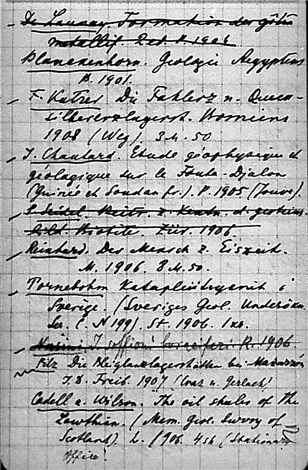 De Launay. Formation des gîtes
metallif. 2ed. P. 1906
Blanckenhorn. Geologie Aegyptens
B. 1901.
F. Katzer. Die Fahlerz u. Queck-
silbererzlagerst. Bosniens
1908 (Weg) 3 M. 50
J. Chautard. Etude géophysique et
géologique sur le Fouta-Djalon
(Guinée et Soudan fr.). P. 1905 (Jouve).
Zür. 1906
Reinhard. Der Mensch z. Eiszeit.
M. 1906. 3 M. 50.
Tornebohm Katapleiitsyenit i
Sverige. (Sveriges Geol. Undersökn.
Ser. C. N 199). St. 1906. 1 kr.
R. 1906.
Pilz Die Bleiglanzlagerstätten bei Mazarrón
I. D. Freib. 1907 (Craz u. Gerlach)
Cadell a. Wilson. The oil shales of the
Lowthian. (Mem. Geol. Survey of
Scotland). L. 1906. 4 sh (Stationary
office)